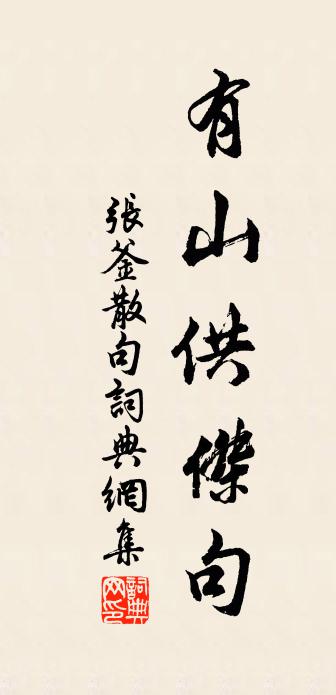 有山供傑句
張釜散句詞典網集
詞典网印